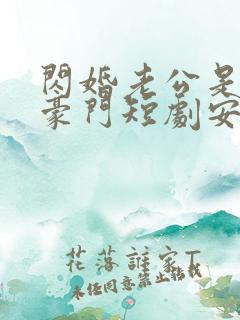 閃婚老公是
豪門短劇安
花落誰家T
未經同意禁止轉載